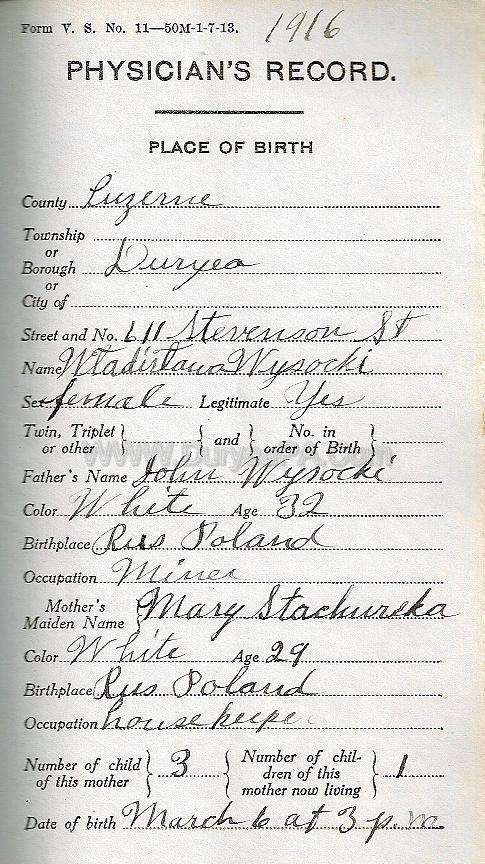 Form V. S. No. 11—50M-1-7-13. 1916
PHYSICIAN'S RECORD.
PLACE OF BIRTH
County Luzerne
Township
or
Borough Duryea
or
City of
Street and No. 611 Stevenson St
Name Wladislawa Wysocki
Sex female Legitimate Yes
Twin, Triplet or other } { and } No. in order of Birth {
Father's Name John Wysocki
Color White Age 32
Birthplace Rus Poland
Occupation Miner
Mother's Maiden Name } Mary Stachurska
Color White Age 29
Birthplace Rus Poland
Occupation housekeeper
Number of child of this mother } 3 { Number of chil-dren of this mother now living } 1
Date of birth March 6 at 3 p.m.